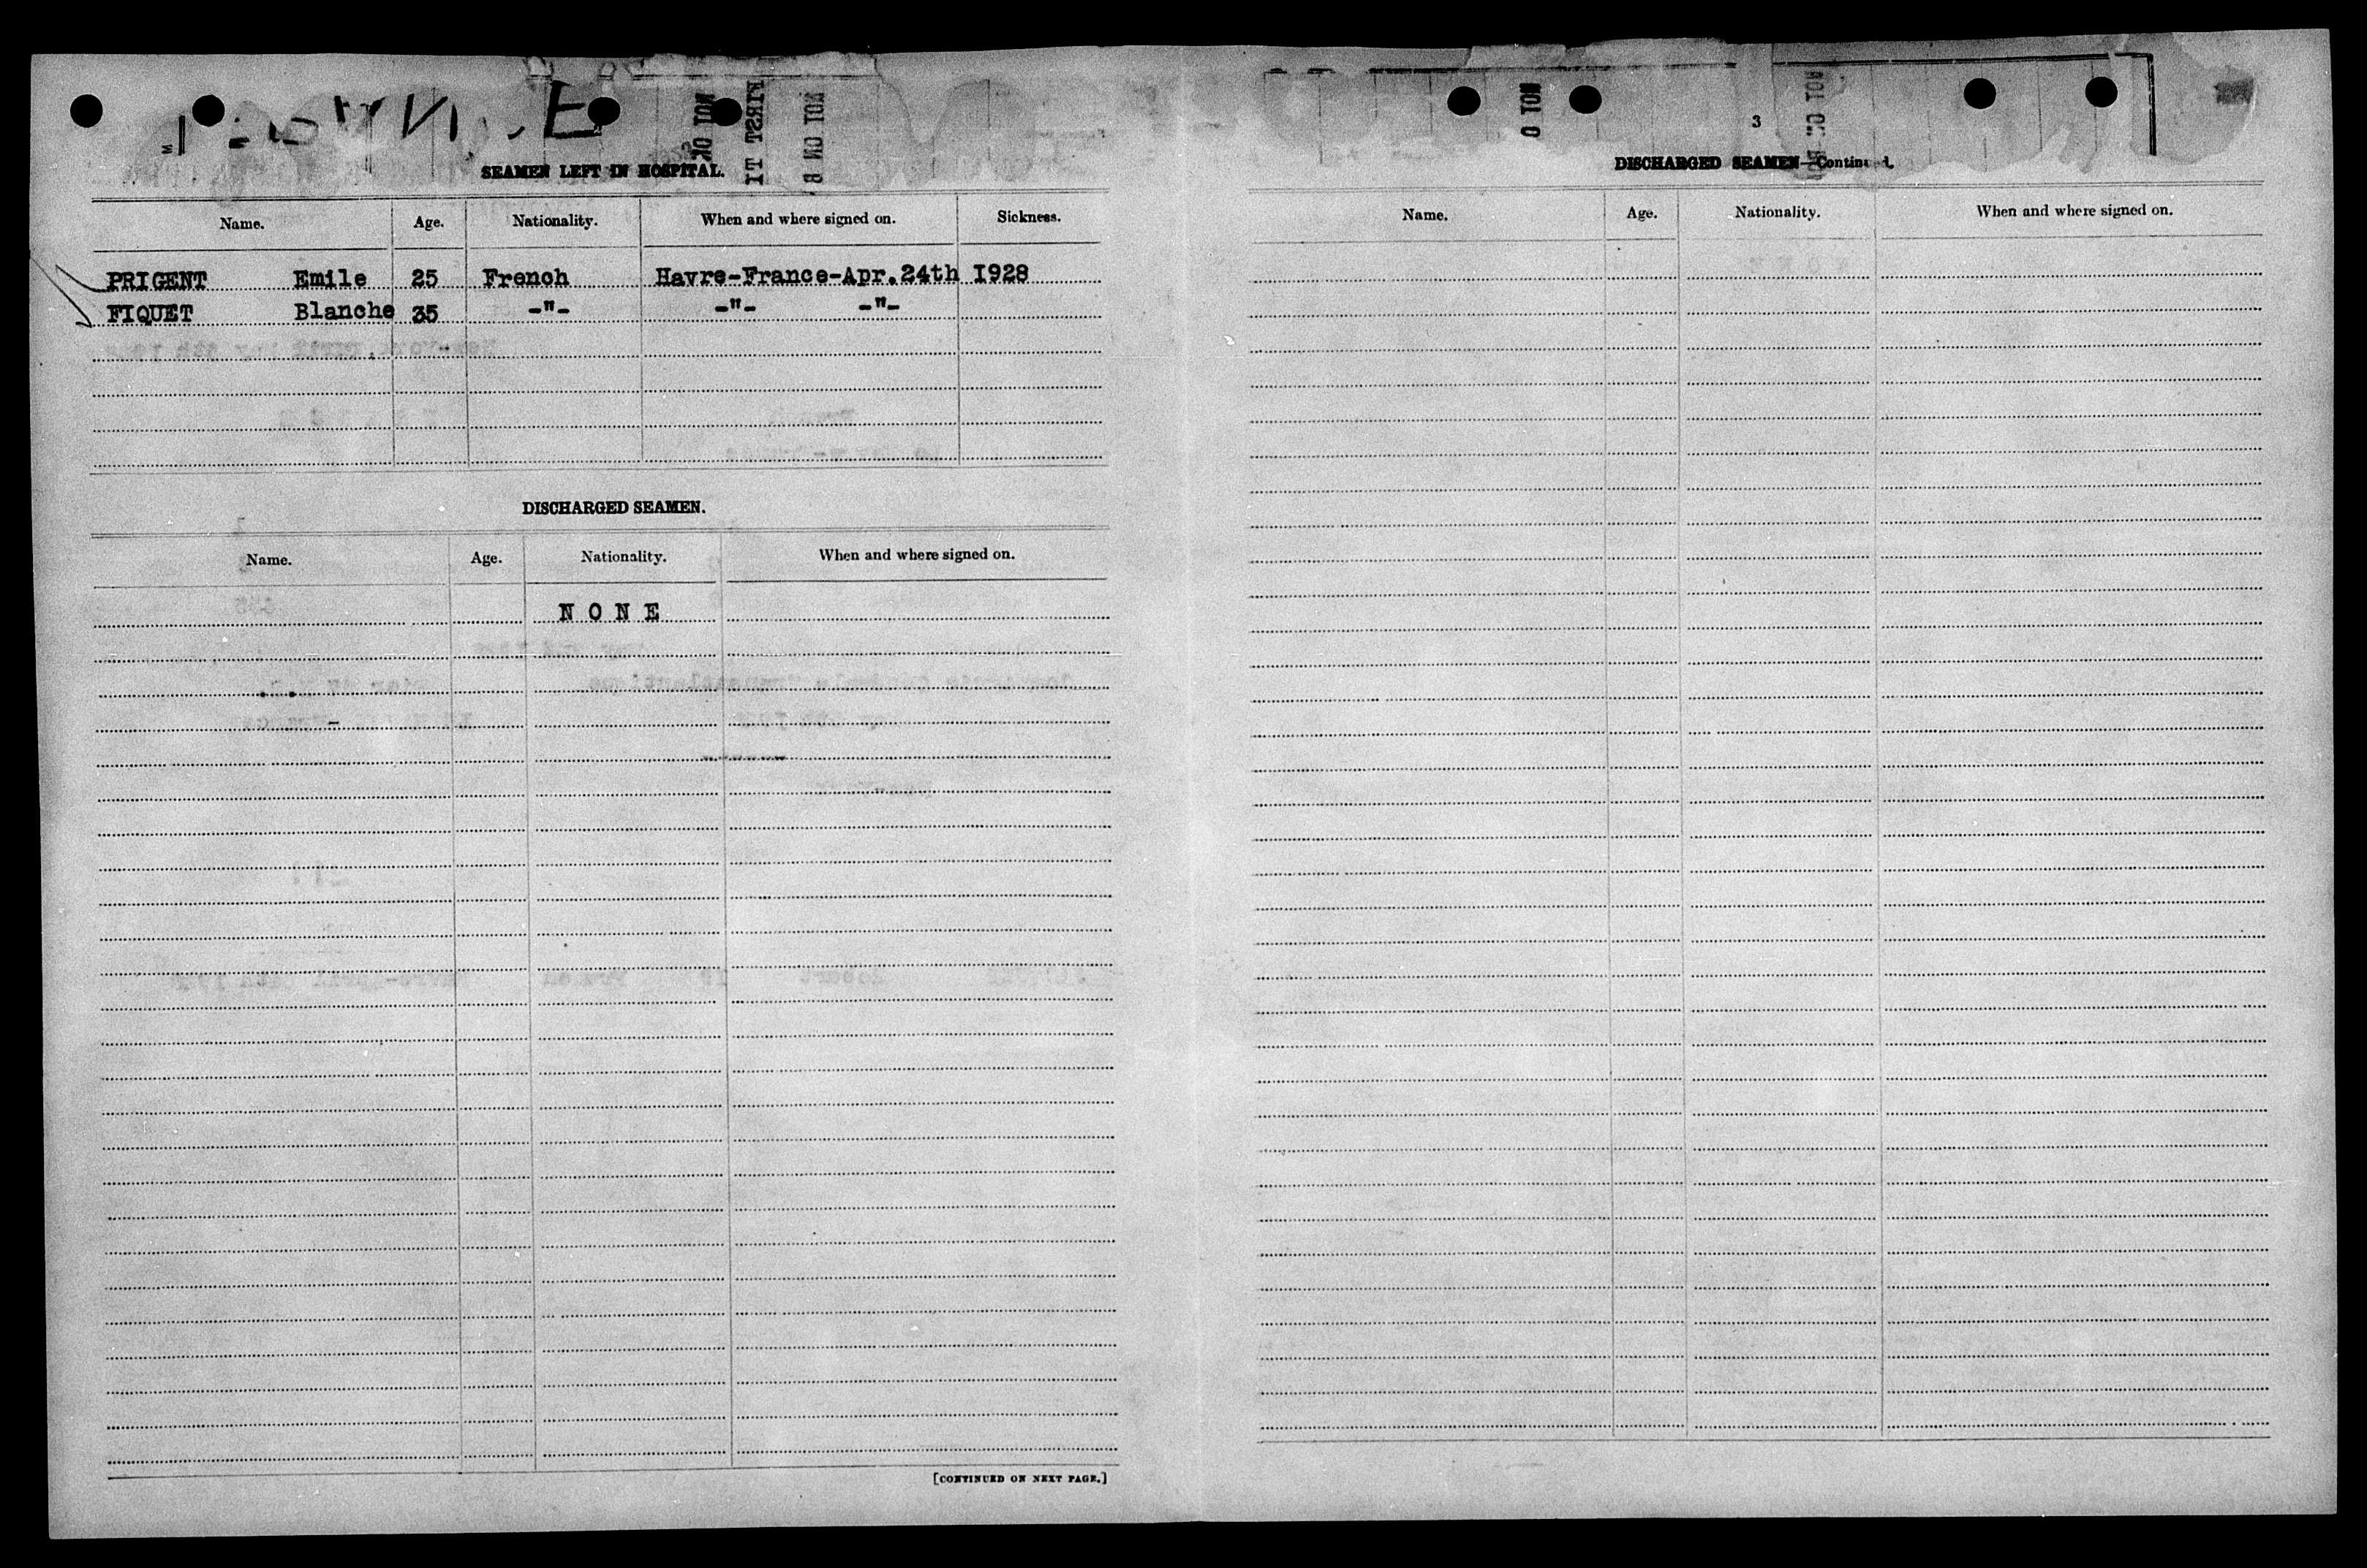 SEAMEN LEFT IN HOSPITAL.
Name. Age. Nationality. When and where signed on. Sickness.
PRIGENT Emile 25 French Havre-France-Apr.24th I928
FIQUET Blanche 35 -"- -"- -"-
DISCHARGED SEAMEN.
Name. Age. Nationality. When and where signed on.
N O N E
[CONTINUED ON NEXT PAGE.]
3
DISCHARGED SEAMEN—Continued.
Name. Age. Nationality. When and where signed on.